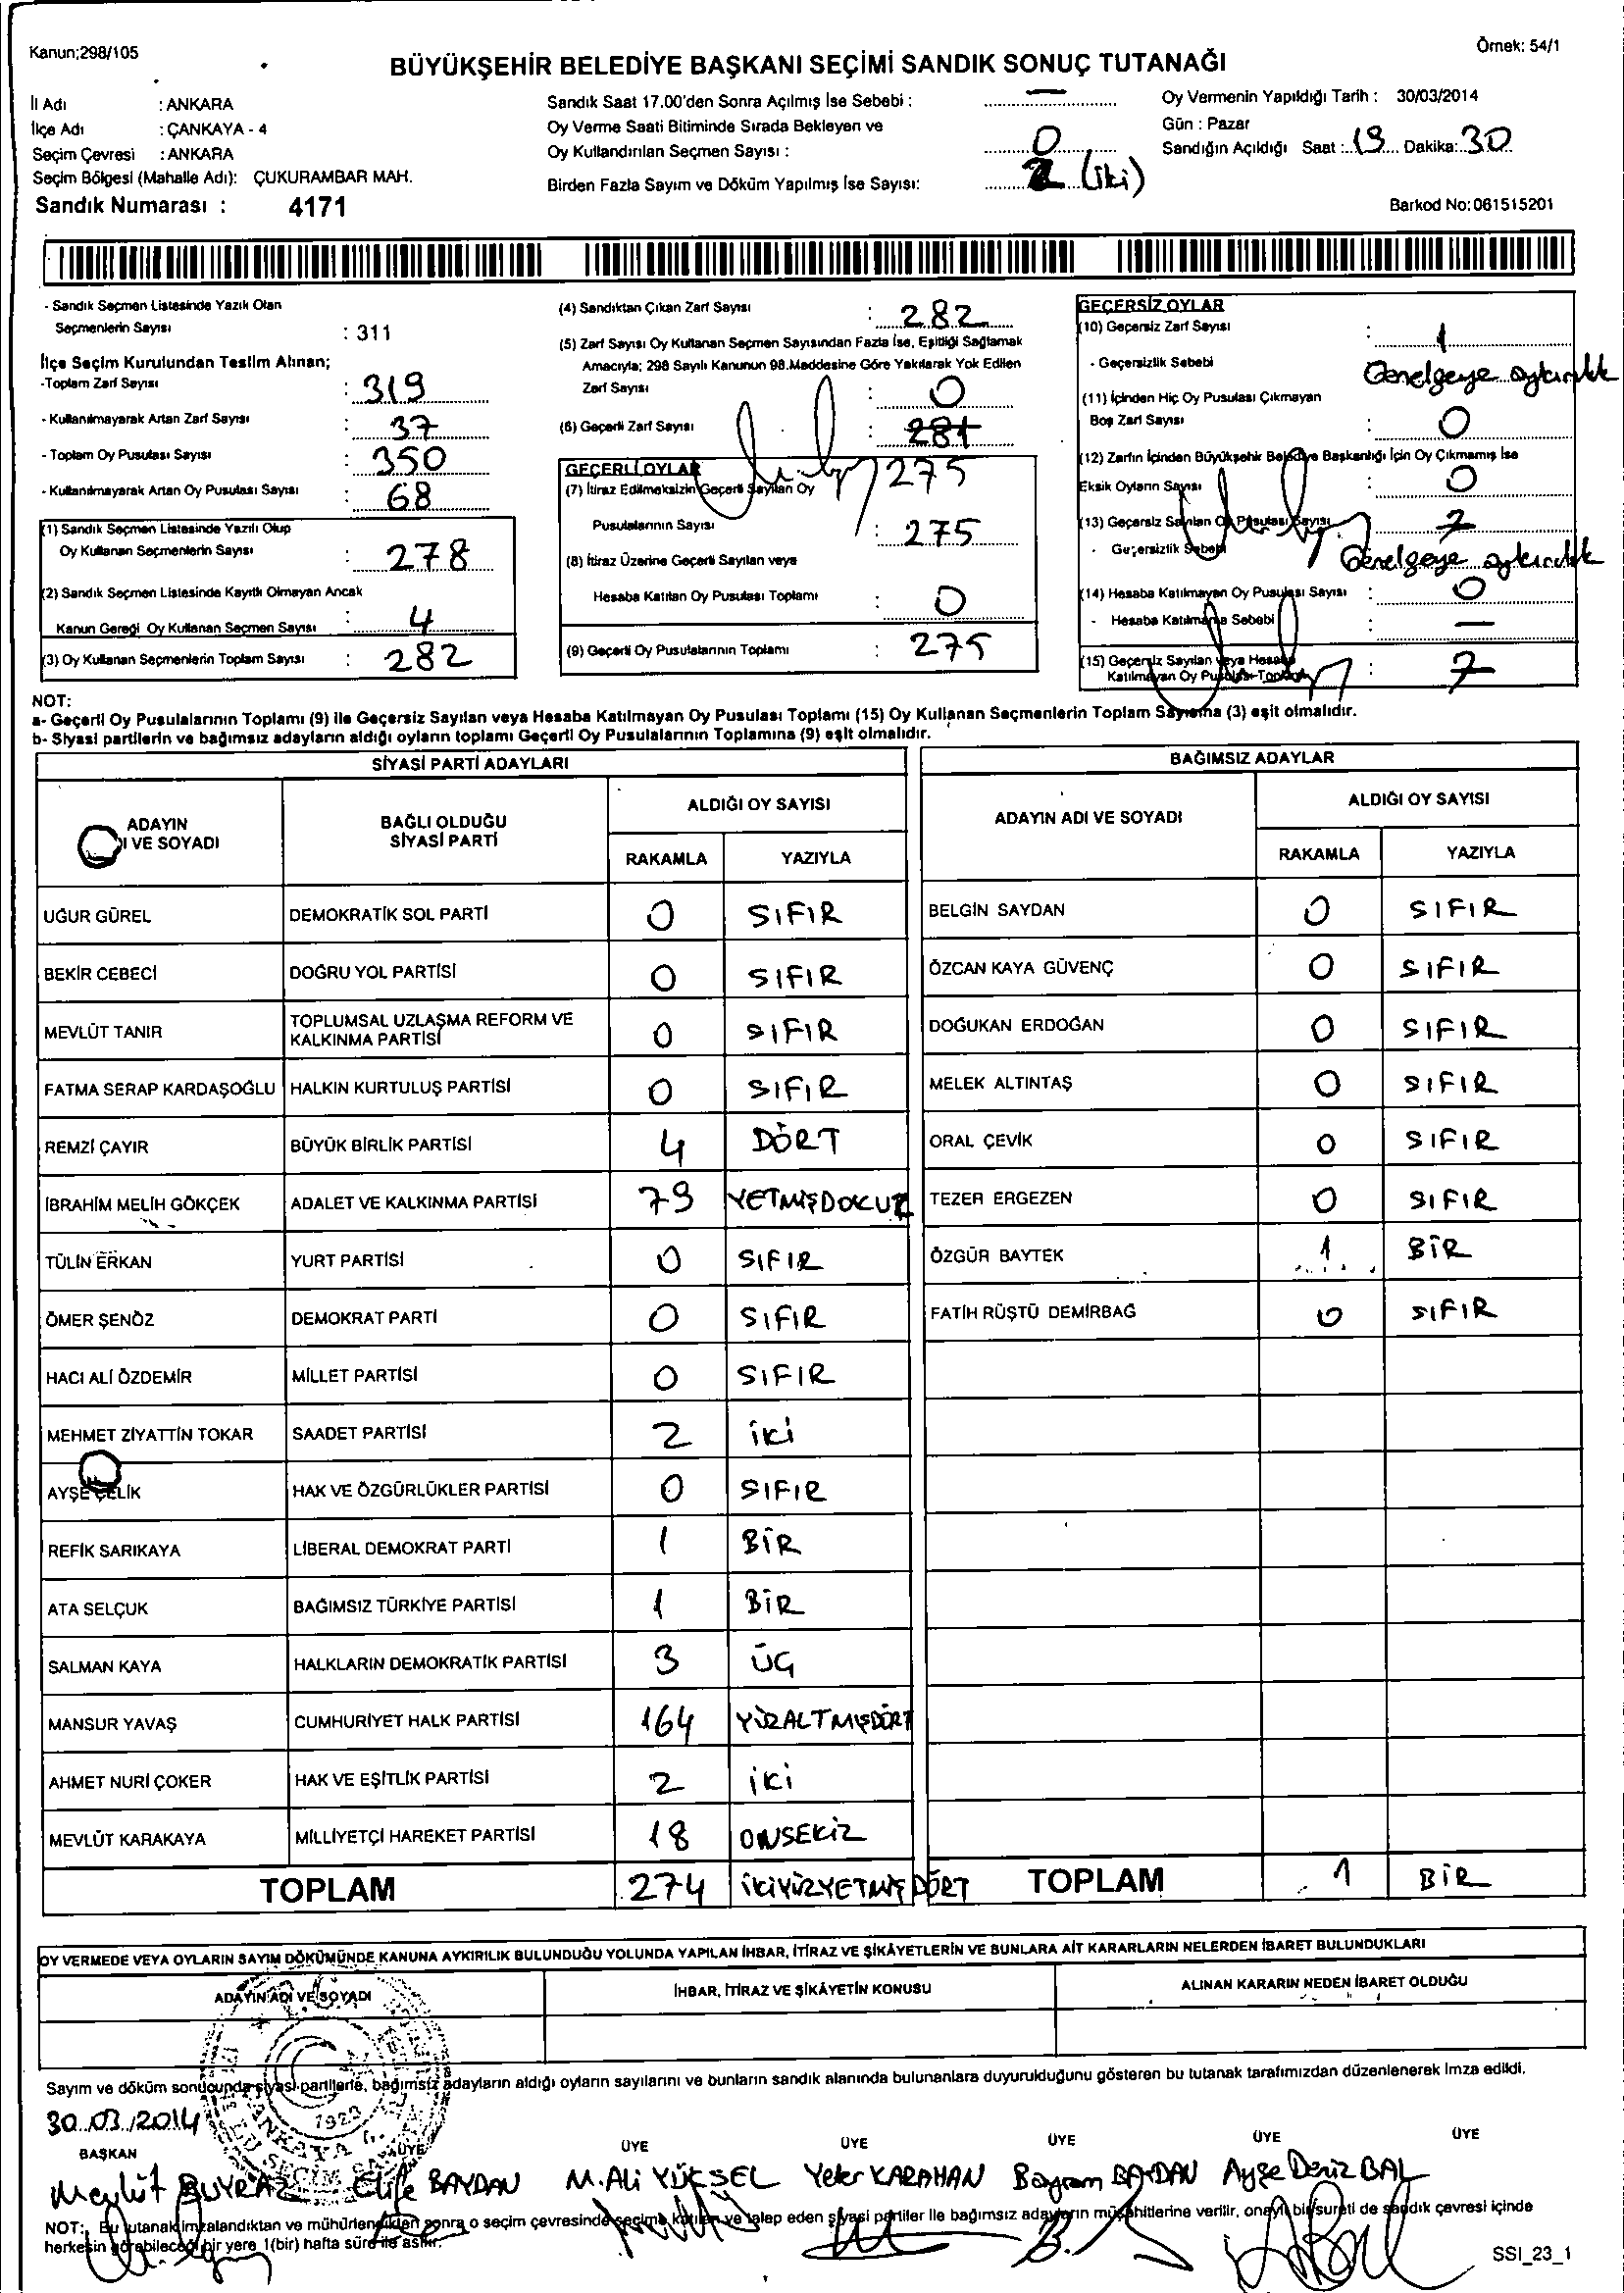 Kanun;298/105
Örnek: 54/1
BÜYÜKŞEHİR BELEDİYE BAŞKANI SEÇİMİ SANDIK SONUÇ TUTANAĞI
İl Adı : ANKARA
İlçe Adı : ÇANKAYA - 4
Seçim Çevresi : ANKARA
Seçim Bölgesi (Mahalle Adı): ÇUKURAMBAR MAH.
Sandık Numarası : 4171
Sandık Saat 17.00'den Sonra Açılmış İse Sebebi : —
Oy Verme Saati Bitiminde Sırada Bekleyen ve
Oy Kullandırılan Seçmen Sayısı : 0
Birden Fazla Sayım ve Döküm Yapılmış İse Sayısı: 2 (iki)
Oy Vermenin Yapıldığı Tarih : 30/03/2014
Gün : Pazar
Sandığın Açıldığı Saat : 19 Dakika: 30
Barkod No: 061515201
- Sandık Seçmen Listesinde Yazılı Olan
Seçmenlerin Sayısı : 311
İlçe Seçim Kurulundan Teslim Alınan;
-Toplam Zarf Sayısı : 319
- Kullanılmayarak Artan Zarf Sayısı : 37
- Toplam Oy Pusulası Sayısı : 350
- Kullanılmayarak Artan Oy Pusulası Sayısı : 68
(1) Sandık Seçmen Listesinde Yazılı Olup
Oy Kullanan Seçmenlerin Sayısı : 278
(2) Sandık Seçmen Listesinde Kayıtlı Olmayan Ancak
Kanun Gereği Oy Kullanan Seçmen Sayısı : 4
(3) Oy Kullanan Seçmenlerin Toplam Sayısı : 282
(4) Sandıktan Çıkan Zarf Sayısı : 282
(5) Zarf Sayısı Oy Kullanan Seçmen Sayısından Fazla İse, Eşitliği Sağlamak
Amacıyla; 298 Sayılı Kanunun 98.Maddesine Göre Yakılarak Yok Edilen
Zarf Sayısı : 0
(6) Geçerli Zarf Sayısı : 281
275
GEÇERLİ OYLAR
(7) İtiraz Edilmeksizin Geçerli Sayılan Oy
Pusulalarının Sayısı : 275
(8) İtiraz Üzerine Geçerli Sayılan veya
Hesaba Katılan Oy Pusulası Toplamı : 0
(9) Geçerli Oy Pusulalarının Toplamı : 275
GEÇERSİZ OYLAR
(10) Geçersiz Zarf Sayısı : 1
- Geçersizlik Sebebi Genelgeye aykırılık
(11) İçinden Hiç Oy Pusulası Çıkmayan
Boş Zarf Sayısı : 0
(12) Zarfın İçinden Büyükşehir Belediye Başkanlığı İçin Oy Çıkmamış İse
Eksik Oyların Sayısı : 0
(13) Geçersiz Sayılan Oy Pusulası Sayısı : 7
- Geçersizlik Sebebi Genelgeye aykırılık
(14) Hesaba Katılmayan Oy Pusulası Sayısı : 0
- Hesaba Katılmama Sebebi : —
(15) Geçersiz Sayılan veya Hesaba
Katılmayan Oy Pusulası Toplamı : 7
NOT:
a- Geçerli Oy Pusulalarının Toplamı (9) ile Geçersiz Sayılan veya Hesaba Katılmayan Oy Pusulası Toplamı (15) Oy Kullanan Seçmenlerin Toplam Sayısına (3) eşit olmalıdır.
b- Siyasi partilerin ve bağımsız adayların aldığı oyların toplamı Geçerli Oy Pusulalarının Toplamına (9) eşit olmalıdır.
SİYASİ PARTİ ADAYLARI
ADAYIN
I VE SOYADI
BAĞLI OLDUĞU
SİYASİ PARTİ
ALDIĞI OY SAYISI
RAKAMLA YAZIYLA
UĞUR GÜREL DEMOKRATİK SOL PARTİ 0 SIFIR
BEKİR CEBECİ DOĞRU YOL PARTİSİ 0 SIFIR
MEVLÜT TANIR TOPLUMSAL UZLAŞMA REFORM VE
KALKINMA PARTİSİ 0 SIFIR
FATMA SERAP KARDAŞOĞLU HALKIN KURTULUŞ PARTİSİ 0 SIFIR
REMZİ ÇAYIR BÜYÜK BİRLİK PARTİSİ 4 DÖRT
İBRAHİM MELİH GÖKÇEK ADALET VE KALKINMA PARTİSİ 79 YETMİŞDOKUZ
TÜLİN ERKAN YURT PARTİSİ 0 SIFIR
ÖMER ŞENÖZ DEMOKRAT PARTİ 0 SIFIR
HACI ALİ ÖZDEMİR MİLLET PARTİSİ 0 SIFIR
MEHMET ZİYATTİN TOKAR SAADET PARTİSİ 2 iki
AYŞE ÇELİK HAK VE ÖZGÜRLÜKLER PARTİSİ 0 SIFIR
REFİK SARIKAYA LİBERAL DEMOKRAT PARTİ 1 BİR
ATA SELÇUK BAĞIMSIZ TÜRKİYE PARTİSİ 1 BİR
SALMAN KAYA HALKLARIN DEMOKRATİK PARTİSİ 3 ÜÇ
MANSUR YAVAŞ CUMHURİYET HALK PARTİSİ 164 YÜZALTMIŞDÖRT
AHMET NURİ ÇOKER HAK VE EŞİTLİK PARTİSİ 2 iki
MEVLÜT KARAKAYA MİLLİYETÇİ HAREKET PARTİSİ 18 ONSEKİZ
TOPLAM 274 İKİYÜZYETMİŞDÖRT
BAĞIMSIZ ADAYLAR
ADAYIN ADI VE SOYADI
ALDIĞI OY SAYISI
RAKAMLA YAZIYLA
BELGİN SAYDAN 0 SIFIR
ÖZCAN KAYA GÜVENÇ 0 SIFIR
DOĞUKAN ERDOĞAN 0 SIFIR
MELEK ALTINTAŞ 0 SIFIR
ORAL ÇEVİK 0 SIFIR
TEZER ERGEZEN 0 SIFIR
ÖZGÜR BAYTEK 1 BİR
FATİH RÜŞTÜ DEMİRBAĞ 0 SIFIR
TOPLAM 1 BİR
OY VERMEDE VEYA OYLARIN SAYIM DÖKÜMÜNDE KANUNA AYKIRILIK BULUNDUĞU YOLUNDA YAPILAN İHBAR, İTİRAZ VE ŞİKÂYETLERİN VE BUNLARA AİT KARARLARIN NELERDEN İBARET BULUNDUKLARI
ADAYIN ADI VE SOYADI
İHBAR, İTİRAZ VE ŞİKÂYETİN KONUSU
ALINAN KARARIN NEDEN İBARET OLDUĞU
Sayım ve döküm sonucunda siyasi partilerle, bağımsız adayların aldığı oyların sayılarını ve bunların sandık alanında bulunanlara duyurulduğunu gösteren bu tutanak tarafımızdan düzenlenerek imza edildi.
30.03./2014
1923
BAŞKAN ÜYE ÜYE ÜYE ÜYE ÜYE ÜYE
Mevlüt BUYRAZ Elife BAYDAN M.Ali YÜKSEL Yeter KARAHAN Bayram BAYDAN Ayşe Deniz BAL
NOT: Bu tutanak imzalandıktan ve mühürlendikten sonra o seçim çevresinde seçime katılan ve talep eden siyasi partiler ile bağımsız adayların müşahitlerine verilir, onaylı bir sureti de sandık çevresi içinde
herkesin görebileceği bir yere 1(bir) hafta süre ile asılır.
SSI_23_1